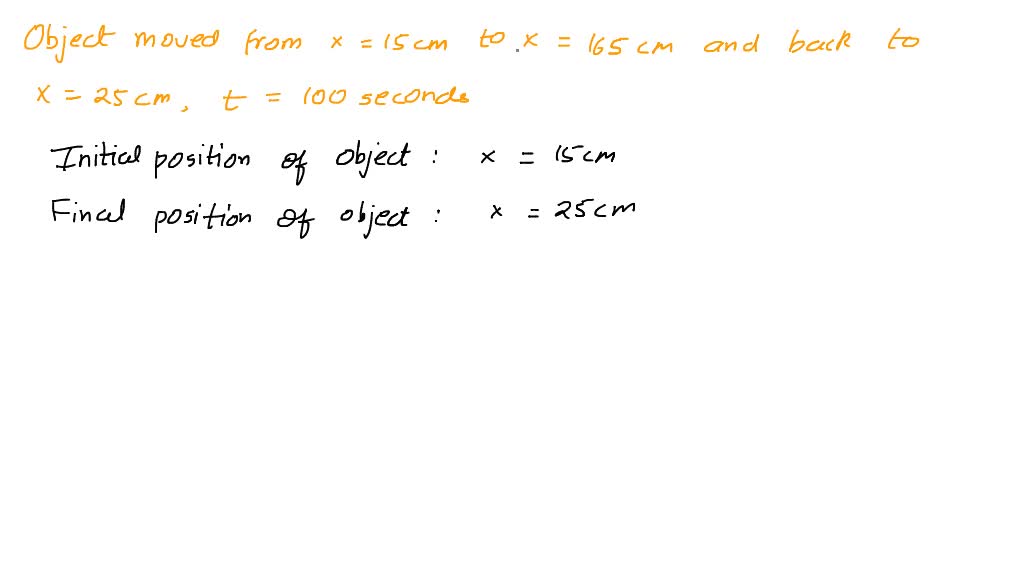 Object moved from x = 15cm to x = 165 cm and back to
x = 25 cm, t = 100 seconds
Initial position of object : x = 15cm
Final position of object : x = 25cm